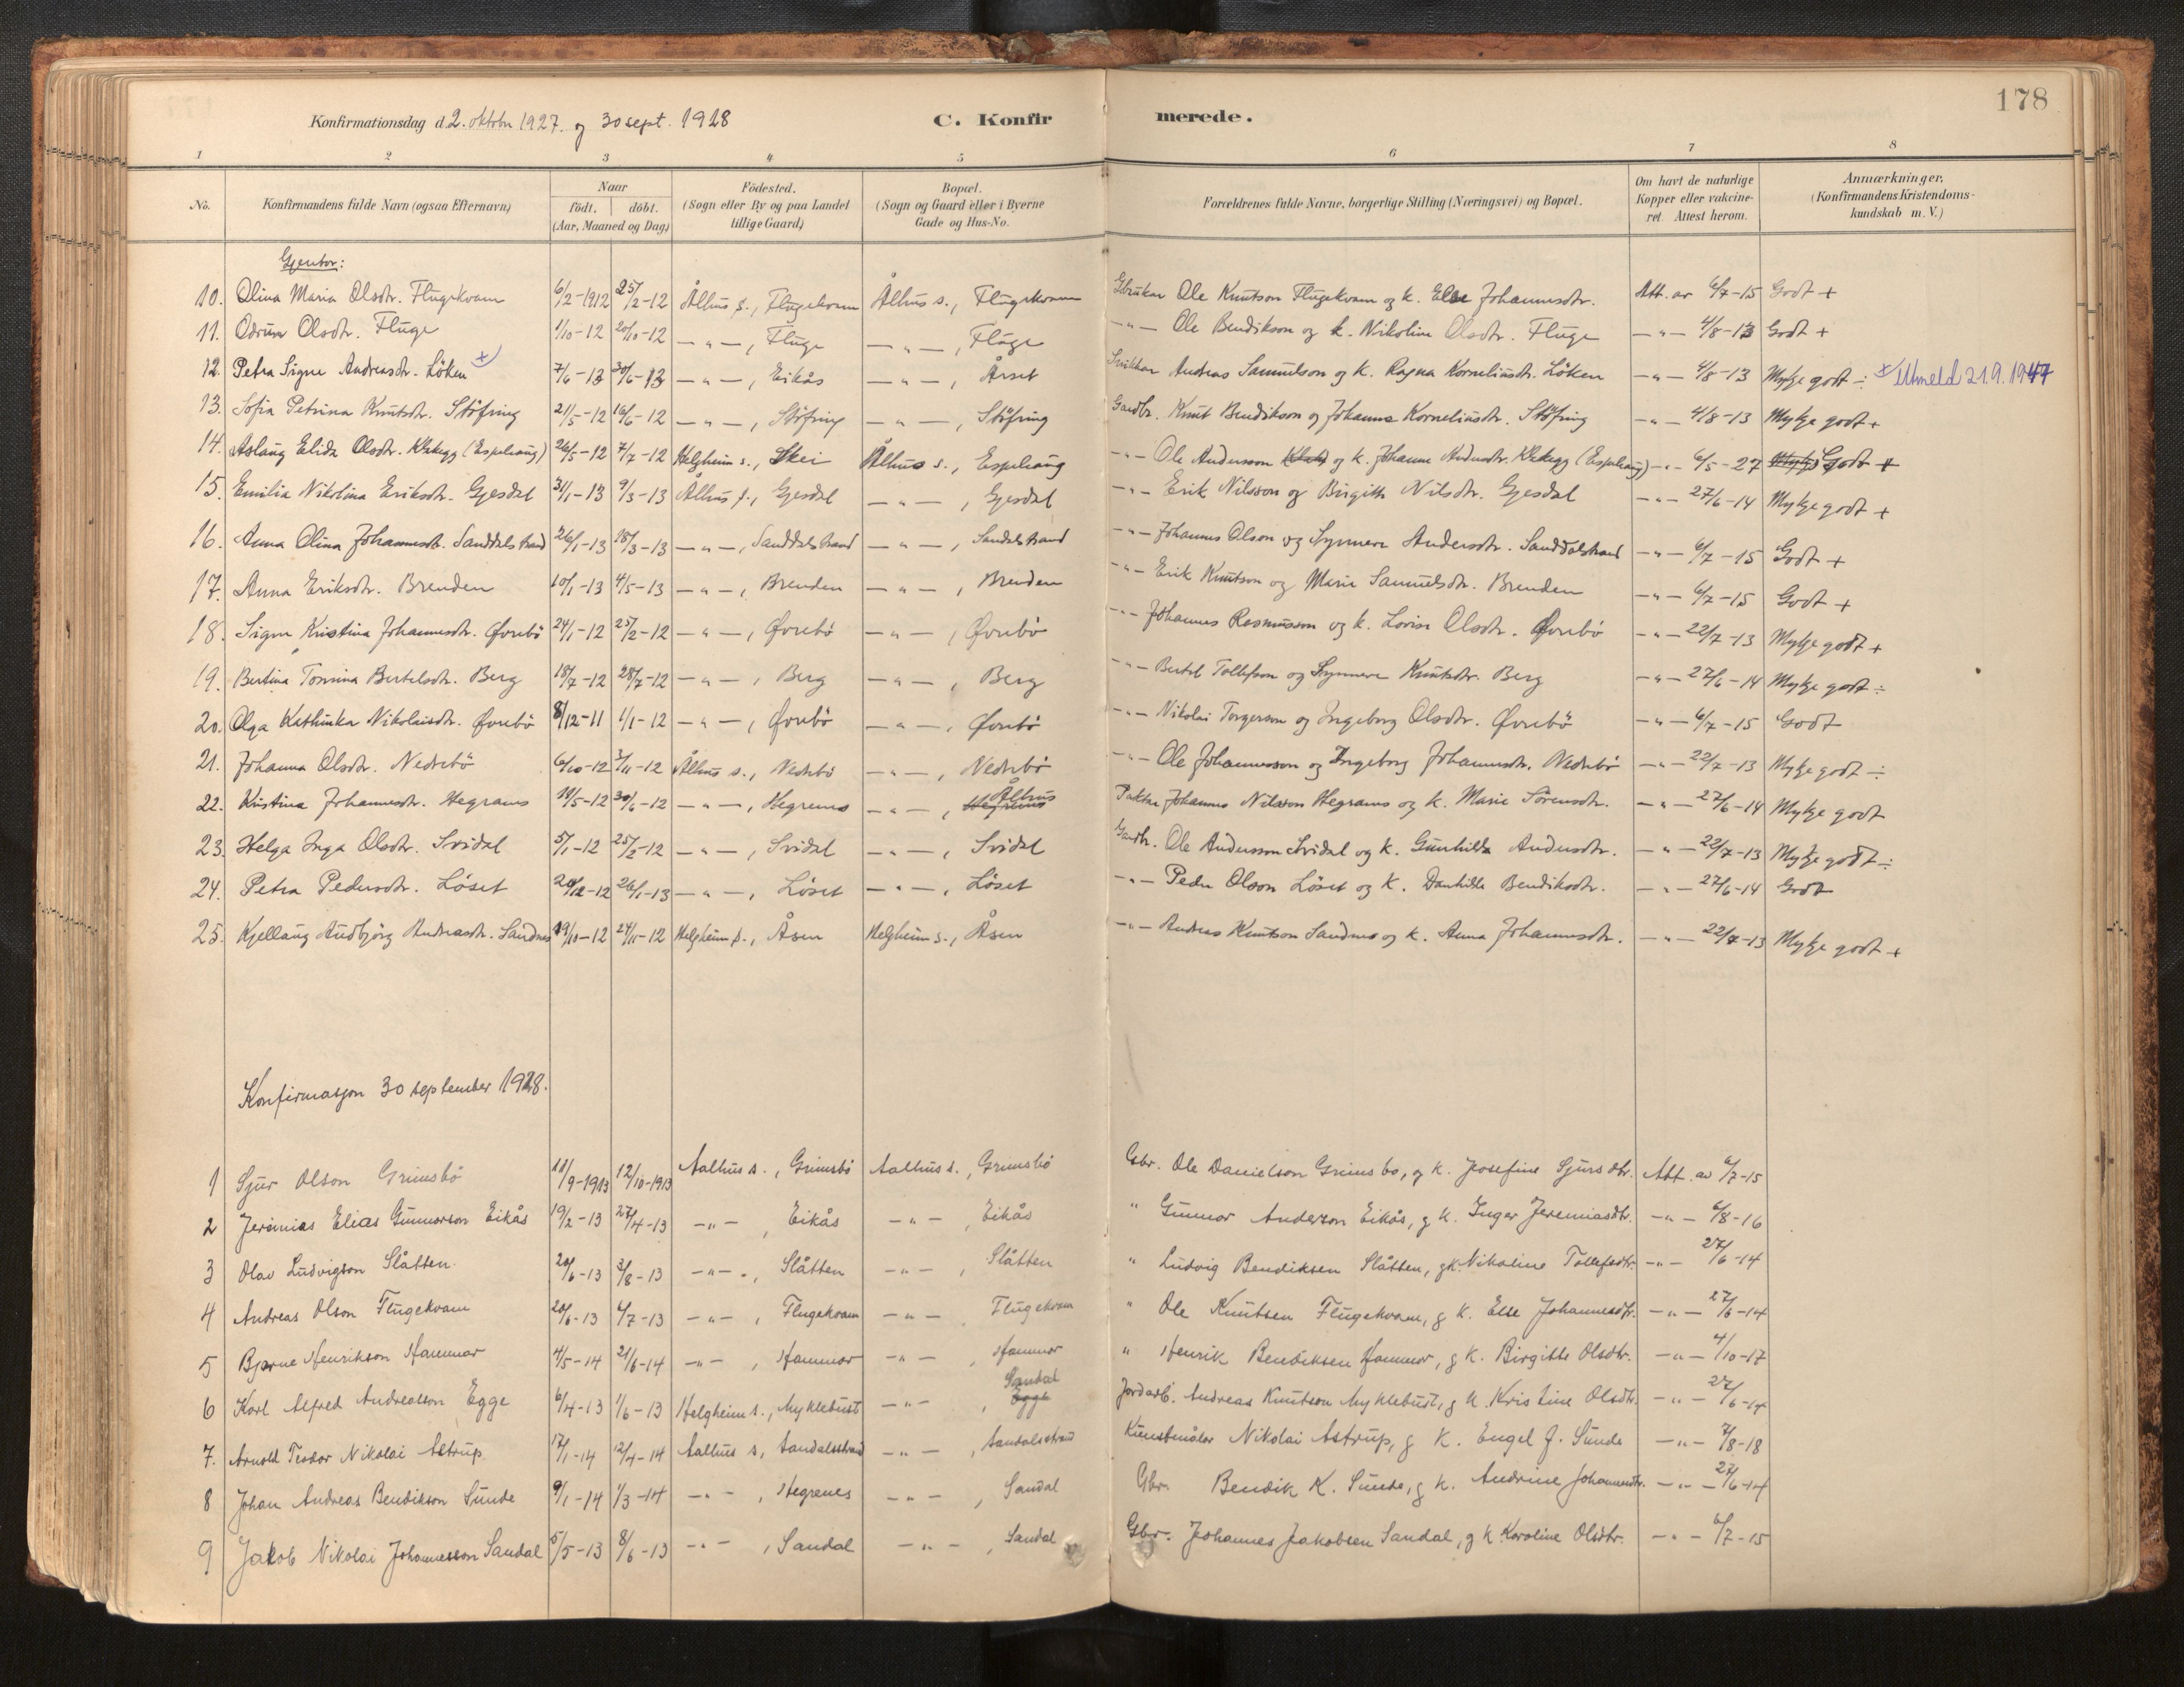 178
Konfirmationsdag d. 2. oktober 1927. og 30 sept. 1928
C. Konfirmerede.
1 2 3 4 5 6 7 8
No.
Konfirmandens fulde Navn (ogsaa Efternavn)
Naar
født. | döbt.
(Aar, Maaned og Dag)
Födested.
(Sogn eller By og paa Landet
tillige Gaard)
Bopæl.
(Sogn og Gaard eller i Byerne
Gade og Hus-No.
Forældrenes fulde Navne, borgerlige Stilling (Næringsvei) og Bopæl.
Om havt de naturlige
Kopper eller vakcine-
ret. Attest herom.
Anmærkninger.
(Konfirmandens Kristendoms-
kundskab m. V.)
Gjentor:
10. Olina Maria Olsdtr. Flugekvam 6/2-1912 25/2-12 Ålhus s., Flugekvam Ålhus s., Flugekvam Gbrukar Ole Knutson Flugekvam og k. Else Johannesdtr. Att. av 6/7-15 Godt +
11. Odrun Olsdtr. Fluge 1/10-12 20/10-12 -"-, Fluge -"-, Fluge -"- Ole Bendikson og k. Nikoline Olsdtr. Fluge -"- 4/8-13 Godt +
12. Petra Signe Andreasdtr. Löken 7/6-13 30/6-13 -"-, Eikås -"-, Årset Andreas Samuelson og k. Ragna Korneliusdtr. Löken -"- 4/8-13 Mykje godt ÷ Utmeld 21.9.1947
13. Sofia Petrina Knutsdtr. Stöfring 21/5-12 16/6-12 -"-, Stöfring -"-, Stöfring Gardbr. Knut Bendikson og Johanne Korneliusdtr. Stöfring -"- 4/8-13 Mykje godt +
14. Aslaug Elida Olsdtr. Klakegg (Espelaug) 26/5-12 7/7-12 Helgheim s., Skei Ålhus s., Espelaug -"- Ole Andersson og k. Johanne Andersdtr. Klakegg (Espelaug) -"- 6/5-27 Godt +
15. Emilia Nikolina Eriksdtr. Gjesdal 31/1-13 9/3-13 Ålhus s., Gjesdal -"-, Gjesdal -"- Erik Nilsson og Birgitte Nilsdtr. Gjesdal -"- 27/6-14 Mykje godt +
16. Anna Olina Johannesdtr. Sanddalstrand 26/1-13 18/3-13 -"-, Sanddalstrand -"-, Sandalstrand -"- Johannes Olson og Synneve Andersdtr. Sanddalstrand -"- 6/7-15 Godt +
17. Anna Eriksdtr. Brenden 10/1-13 4/5-13 -"-, Brenden -"-, Brenden -"- Erik Knutson og Marie Samuelsdtr. Brenden -"- 6/7-15 Godt +
18. Signe Kristina Johannesdtr. Øvrebö 24/1-12 25/2-12 -"-, Øvrebö -"-, Øvrebö -"- Johannes Rasmusson og k. Lovise Olsdtr. Øvrebö -"- 22/7-13 Mykje godt +
19. Bertina Tomina Bertelsdtr. Berg 18/7-12 28/7-12 -"-, Berg -"-, Berg -"- Bertel Tollefson og Synneve Knutsdtr. Berg -"- 27/6-14 Mykje godt ÷
20. Olga Kathinka Nikolaisdtr. Øvrebö 8/12-11 1/1-12 -"-, Øvrebö -"-, Øvrebö -"- Nikolai Torgerson og Ingeborg Olsdtr. Øvrebö -"- 6/7-15 Godt
21. Johanna Olsdtr. Nedrebö 6/10-12 3/11-12 Ålhus s., Nedrebö -"-, Nedrebö -"- Ole Johannesson og Ingeborg Johannesdtr. Nedrebö -"- 22/7-13 Mykje godt ÷
22. Kristina Johannesdtr. Hegrenes 19/5-12 30/6-12 -"-, Hegrenes -"-, Hegrenes Ålhus Johannes Nilsson Hegrenes og k. Marie Sörensdtr. -"- 27/6-14 Mykje godt
23. Helga Inga Olsdtr. Svidal 5/1-12 25/2-12 -"-, Svidal -"-, Svidal Gardbr. Ole Andersson Svidal og k. Gunhilda Andersdtr. -"- 22/7-13 Mykje godt ÷
24. Petra Pedersdtr. Löset 20/12-12 26/1-13 -"-, Löset -"-, Löset -"- Peder Olson Löset og k. Danhilde Bendiksdtr. -"- 27/6-14 Godt
25. Kjellaug Audbjörg Andreasdtr. Sandnes 19/10-12 24/11-12 Helgheim s., Åsen Helgheim s., Åsen -"- Andreas Knutson Sandnes og k. Anna Johannesdtr. -"- 22/7-13 Mykje godt +
Konfirmasjon 30 september 1928.
1 Sjur Olson Grimsbö 11/9-1913 12/10-1913 Aalhus s., Grimsbö Aalhus s., Grimsbö Gbr. Ole Danielson Grimsbo, og k. Josefine Sjursdtr. Att. av 6/7-15
2 Jeremias Elias Gunnarson Eikås 19/2-13 27/4-13 -"-, Eikås -"- Eikås " Gunnar Anderson Eikås, g k. Inger Jeremiasdtr. -"- 6/8-16
3 Olav Ludvigson Slåtten 20/6-13 3/8-13 -"-, Slåtten -"-, Slåtten " Ludvig Bendiksen Slåtten, g k. Nikoline Tollefsdtr. -"- 27/6-14
4 Andreas Olson Flugekvam 20/6-13 6/7-13 -"-, Flugekvam -"-, Flugekvam " Ole Knutsen Flugekvam, g k. Else Johannesdtr. -"- 27/6-14
5 Bjarne Henrikson Hammar 4/5-14 21/6-14 -"-, Hammar -"-, Hammar " Henrik Bendiksen Hammar, g k. Birgitte Olsdtr. -"- 4/10-17
6 Karl Alfred Andreasson Egge 6/4-13 1/6-13 Helgheim s., Myklebust -"-, Egge Sandal Jordarb. Andreas Knutson Myklebust, g k. Kristine Olsdtr. -"- 27/6-14
7. Arnold Teodor Nikolai Astrup 17/1-14 12/4-14 Aalhus s, Sandalsstrand -"-, Sandalsstrand Kunstmåler Nikolai Astrup, g k. Engel J. Sunde -"- 7/8-18
8 Johan Andreas Bendikson Sunde 9/1-14 1/3-14 -"-, Hegrenes -"-, Sandal Gbr. Bendik K. Sunde, g k. Andrine Johannesdtr. -"- 27/6-14
9 Jakob Nikolai Johannesson Sandal 5/5-13 8/6-13 -"-, Sandal -"-, Sandal Gbr. Johannes Jakobsen Sandal, g k Karoline Olsdtr. -"- 6/7-15